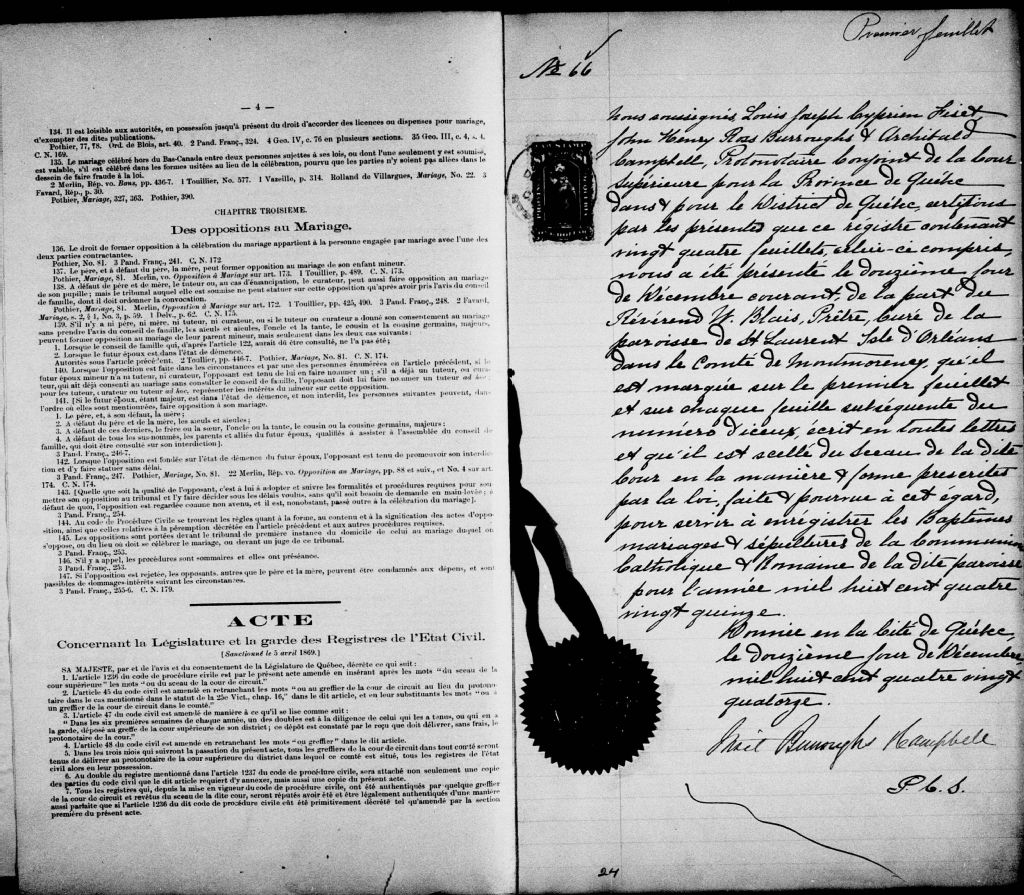 — 4 —
134. Il est loisible aux autorités, en possession jusqu'à présent du droit d'accorder des licences ou dispenses pour mariage,
d'exempter des dites publications.
Pothier, 77, 78. Ord. de Blois, art. 40. 2 Pand. Franç., 324. 4 Geo. IV, c. 76 en plusieurs sections. 35 Geo. III, c. 4, s. 4.
C. N. 169.
135. Le mariage célébré hors du Bas-Canada entre deux personnes sujettes à ses lois, ou dont l'une seulement y est soumise,
est valable, s'il est célébré dans les formes usitées au lieu de la célébration, pourvu que les parties n'y soient pas allées dans le
dessein de faire fraude à la loi.
2 Merlin, Rép. vo. Bans, pp. 436-7. 1 Touillier, No. 577. 1 Vazeille, p. 314. Rolland de Villargues, Mariage, No. 22. 3
Favard, Rép., p. 30.
Pothier, Mariage, 327, 363. Pothier, 390.
CHAPITRE TROISIEME.
Des oppositions au Mariage.
136. Le droit de former opposition à la célébration du mariage appartient à la personne engagée par mariage avec l'une des
deux parties contractantes.
Pothier, No. 81. 3 Pand. Franç., 241. C. N. 172.
137. Le père, et à défaut du père, la mère, peut former opposition au mariage de son enfant mineur.
Pothier, Mariage, 81. Merlin, vo. Opposition à Mariage sur art. 173. 1 Touillier, p. 489. C. N. 173.
138. A défaut de père et de mère, le tuteur ou, au cas d'émancipation, le curateur, peut aussi faire opposition au mariage
de son pupille; mais le tribunal auquel elle est soumise ne peut statuer sur cette opposition qu'après avoir pris l'avis du conseil
de famille, dont il doit ordonner la convocation.
Pothier, Mariage, 81. Merlin, Opposition à Mariage sur art. 172. 1 Touillier, pp. 425, 490. 3 Pand. Franç., 248. 2 Favard,
Mariage, s. 2, § 1, No. 3, p. 59. 1 Delv., p. 62. C. N. 175.
139. S'il n'y a ni père, ni mère, ni tuteur, ni curateur, ou si le tuteur ou curateur a donné son consentement au mariage
sans prendre l'avis du conseil de famille, les aïeuls et aïeules, l'oncle et la tante, le cousin et la cousine germains, majeurs,
peuvent former opposition au mariage de leur parent mineur, mais seulement dans les deux cas suivants:
1. Lorsque le conseil de famille qui, d'après l'article 122, aurait dû être consulté, ne l'a pas été;
2. Lorsque le futur époux est dans l'état de démence.
Autorités sous l'article précé'ent. 2 Toullier, pp. 446-7. Pothier, Mariage, No. 81. C. N. 174.
140. Lorsque l'opposition est faite dans les circonstances et par une des personnes énumérées en l'article précédent, si le
futur époux mineur n'a ni tuteur, ni curateur, l'opposant est tenu de lui en faire nommer un; s'il a déjà un tuteur, ou cura-
teur, qui ait déjà consenti au mariage sans consulter le conseil de famille, l'opposant doit lui faire nommer un tuteur ad hoc,
pour les tuteur, curateur ou tuteur ad hoc, représenter les intérêts du mineur sur cette opposition.
141. [Si le futur époux, étant majeur, est dans l'état de démence, et non interdit, les personnes suivantes peuvent, dans
l'ordre où elles sont mentionnées, faire opposition à son mariage.
1. Le père, et, à son défaut, la mère;
2. A défaut du père et de la mère, les aïeuls et aïeules;
3. A défaut de ces derniers, le frère ou la sœur, l'oncle ou la tante, le cousin ou la cousine germains, majeurs;
4. A défaut de tous les sus-nommés, les parents et alliés du futur époux, qualifiés à assister à l'assemblée du conseil de
famille, qui doit être consulté sur son interdiction].
3 Pand. Franç., 246-7.
142. Lorsque l'opposition est fondée sur l'état de démence du futur époux, l'opposant est tenu de promouvoir son interdic-
tion et d'y faire statuer sans délai.
3 Pand. Franç., 247. Pothier, Mariage, No. 81. 22 Merlin, Rép. vo. Opposition au Mariage, pp. 88 et suiv., et No. 4 sur art.
174. C. N. 174.
143. [Quelle que soit la qualité de l'opposant, c'est à lui à adopter et suivre les formalités et procédures requises pour son
mettre son opposition au tribunal et l'y faire décider sous les délais voulus, sans qu'il soit besoin de demande en main-levée; à
défaut de quoi, l'opposition est regardée comme non avenu, et il est, nonobstant, passé outre à la célébration du mariage].
3 Pand. Franç., 254.
144. Au code de Procédure Civile se trouvent les règles quant à la forme, au contenu et à la signification des actes d'oppo-
sition, ainsi que celles relatives à la péremption décrétée en l'article précédent et aux autres procédures requises.
145. Les oppositions sont portées devant le tribunal de première instance du domicile de celui au mariage duquel on
s'oppose, ou du lieu où doit se célébrer le mariage, ou devant un juge de ce tribunal.
3 Pand. Franç., 253.
146. S'il y a appel, les procédures sont sommaires et elles ont préséance.
3 Pand. Franç., 253.
147. Si l'opposition est rejetée, les opposants, autres que le père et la mère, peuvent être condamnés aux dépens, et sont
passibles de dommages-intérêts suivant les circonstances.
3 Pand. Franç., 255-6. C. N. 179.
ACTE
Concernant la Législature et la garde des Registres de l'Etat Civil.
[Sanctionné le 5 avril 1869.]
SA MAJESTE, par et de l'avis et du consentement de la Législature de Québec, décrète ce qui suit:
1. L'article 1236 du code de procédure civile est par le présent acte amendé en insérant après les mots "du sceau de la
cour supérieure" les mots "ou du sceau de la cour de circuit."
2. L'article 45 du code civil est amendé en retranchant les mots "ou au greffier de la cour de circuit au lieu du protono-
taire dans le cas mentionné dans le statut de la 25e Vict., chap. 16," dans le dit article, et en leur substituants les mots "ou à
un greffier de la cour de circuit dans le comté."
3. L'article 47 du code civil est amendé de manière à ce qu'il se lise comme suit:
"Dans les six premières semaines de chaque année, un des doubles est à la diligence de celui qui les a tenus, ou qui en a
la garde, déposé au greffe de la cour supérieure de son district; ce dépôt est constaté par le reçu que doit délivrer, sans frais, le
protonotaire de la cour."
4. L'article 48 du code civil est amendé en retranchant les mots "ou greffier" dans le dit article.
5. Dans les trois mois qui suivront la passation du présent acte, tous les greffiers de la cour de circuit dans tout courté seront
tenus de délivrer au protonotaire de la cour supérieure du district dans lequel ce comté est situé, tous les registres de l'état
civil alors en leur possession.
6. Au double du registre mentionné dans l'article 1237 du code de procédure civile, sera attaché non seulement une copie
des parties du code civil que le dit article requiert d'y annexer, mais aussi une copie du présent acte.
7. Tous les registres qui, depuis la mise en vigueur du code de procédure civile, ont été authentiqués par quelque greffier
de la cour de circuit et revêtus du sceau de la dite cour, seront réputés avoir été et être légalement authentiqués d'une manière
aussi parfaite que si l'article 1236 du dit code de procédure civile eût été primitivement décrété tel qu'amendé par la section
première du présent acte.
Premier feuillet
No 66
Nous soussignés, Louis Joseph Cyprien Fiset,
John Henry Ross Burroughs & Archibald
Campbell, Protonotaire Conjoint de la Cour
Supérieure pour la Province de Québec
dans & pour le District de Québec, certifions
par les présentes que ce régistre contenant
vingt quatre feuillets, celui-ci compris,
nous a été présenté le douzième jour
de Décembre courant, de la part du
Révérend W. Blais, Prêtre, Curé de la
paroisse de St Laurent Isle d'Orléans
dans le Comté de Montmorency, qu'il
est marqué sur le premier feuillet
et sur chaque feuille subséquente du
numéro d'iceux, écrit en toutes lettres
et qu'il est scellé du Sceau de la Dite
Cour en la manière & forme prescrites
par la loi, faite & pourvue à cet egard,
pour servir à enrégistrer les Baptêmes
mariages & sépultures de la Communion
Catholique & Romaine de la Dite paroisse
pour l'année mil huit cent quatre
vingt quinze.
Donnée en la Cité de Québec,
le douzième jour de Décembre
mil huit cent quatre vingt
quatorze.
Fiset Burroughs & Campbell
P. C. S.
24